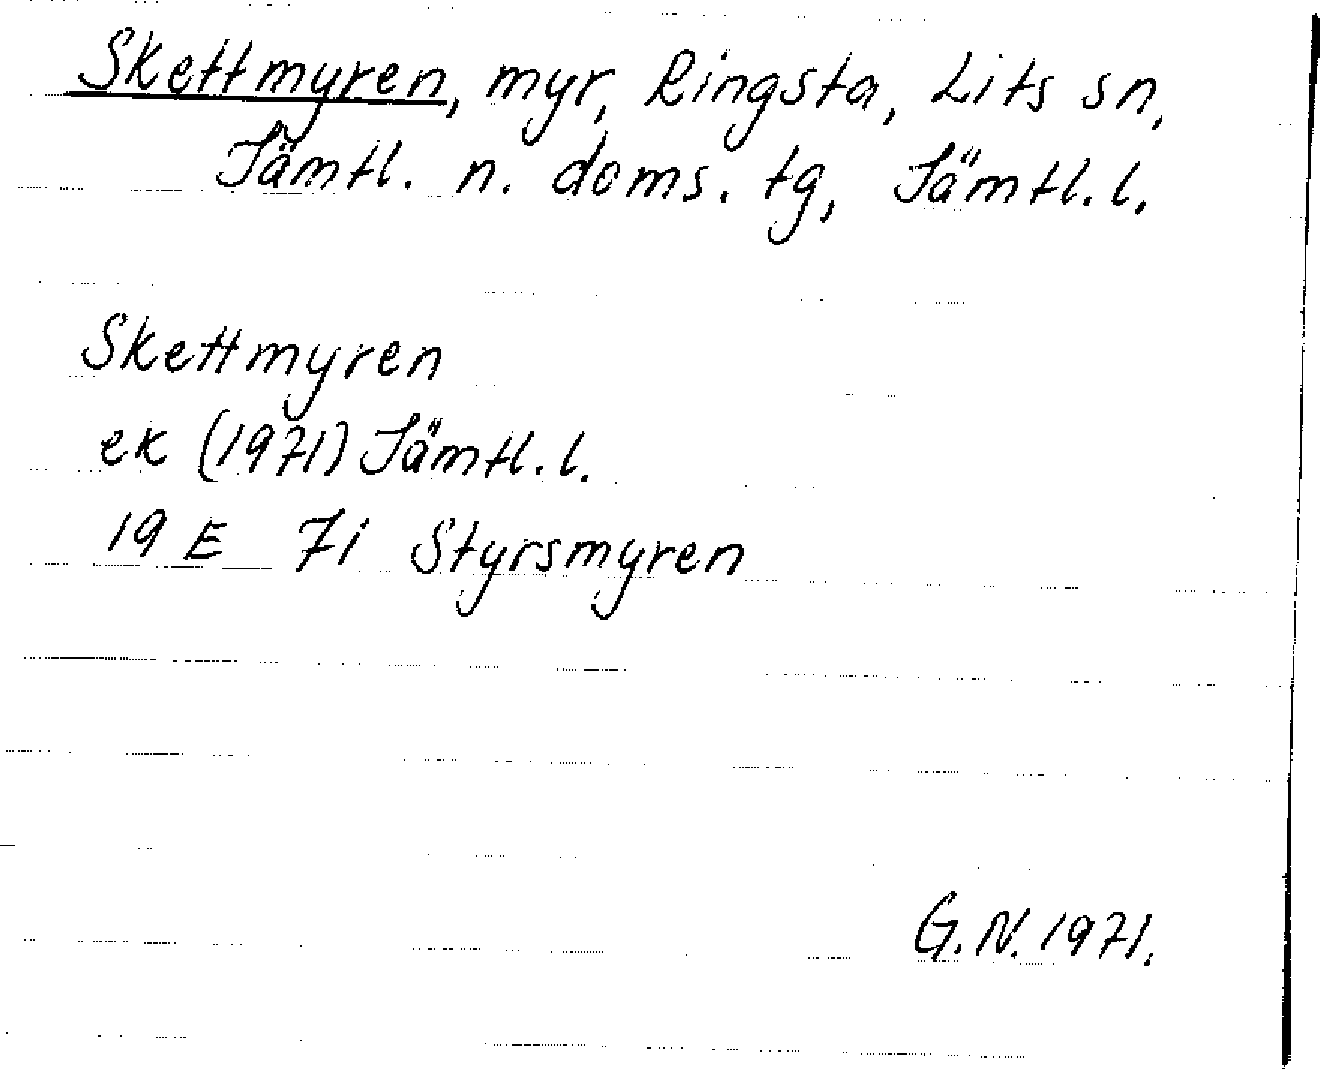 Skettmyren, myr, Ringsta, Lits sn,
Jämtl. n. doms. tg, Jämtl. l.
Skettmyren
ek (1971) Jämtl. l.
19 E 7i Styrsmyren
G.N. 1971.